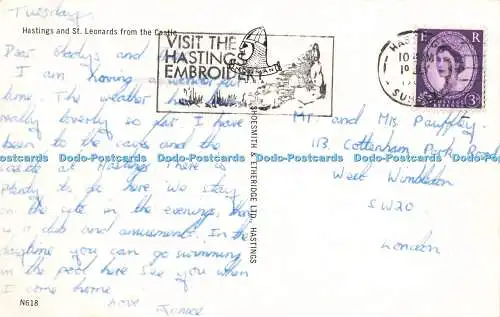 Tuesday
Hastings and St. Leonards from the Castle
Dear Gladys and
I am having a wonderful
time. The weather has been
really lovely so far. I have
been to the caves and the
castle at Hastings. There is
plenty to do here. We stay
on the site in the evenings, there
is a club and amusements. In the
daytime you can go swimming
in the pool here. See you when
I come home.
Love
N618
SHOESMITH & ETHERIDGE LTD., HASTINGS
VISIT THE
HASTINGS
EMBROIDERY
HASTINGS
10
SUSSEX
E R
3D
Mr. and Mrs. Pauffley.
113, Cottenham Park Road
West Wimbledon
SW20
London
Dodo-Postcards Dodo-Postcards Dodo-Postcards Dodo-Postcards Dodo-Postcards Dodo-Postcards Dodo-Postcards